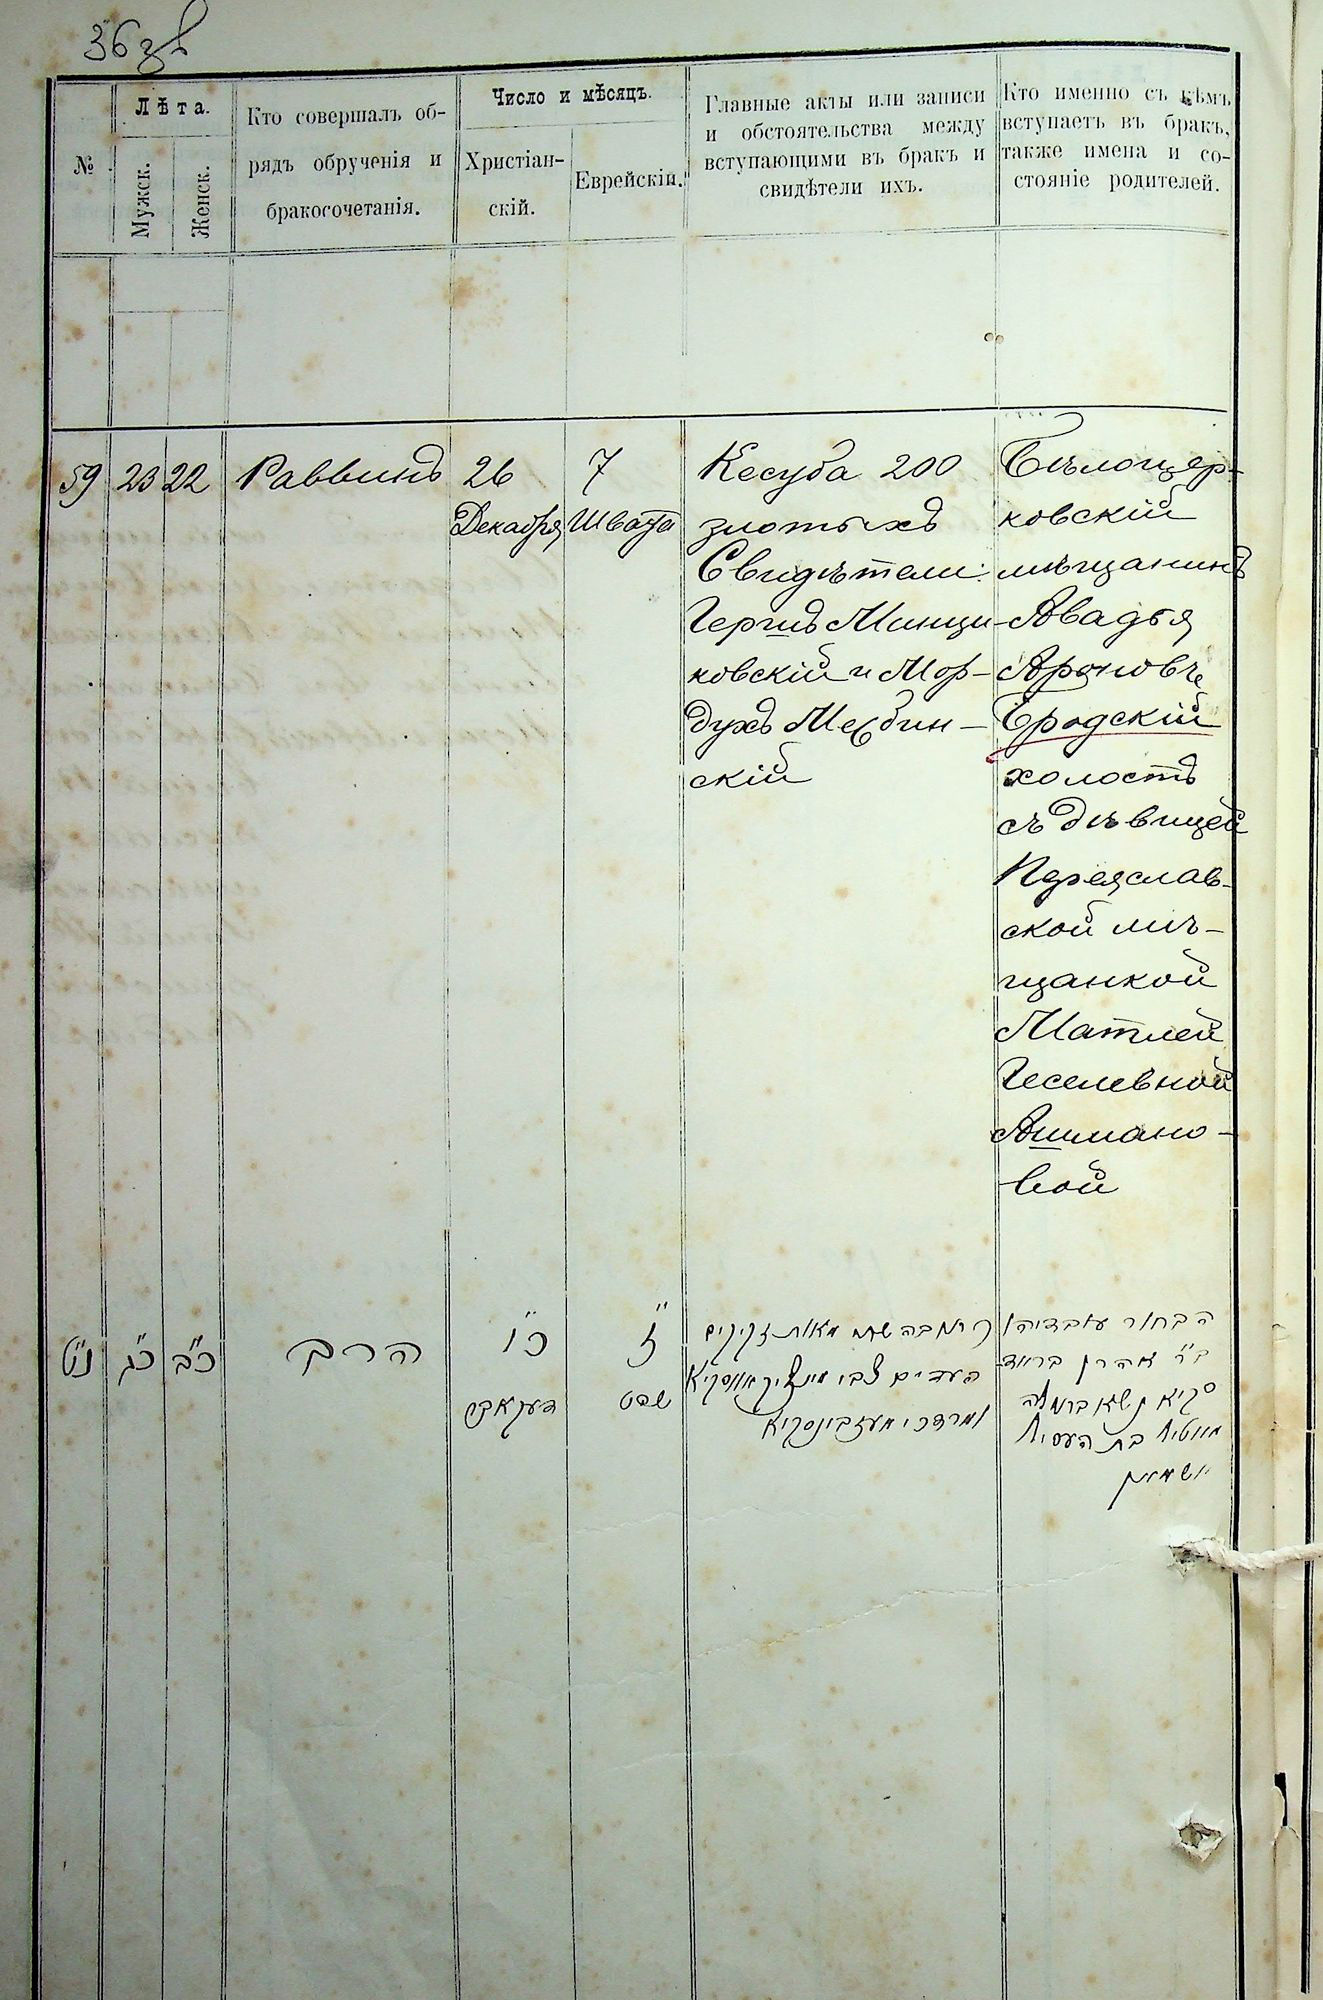 36 зв
№
Лѣта.
Мужск.
Женск.
Кто совершалъ об-
рядъ обрученія и
бракосочетанія.
Число и мѣсяцъ.
Христіан-
скій.
Еврейскій.
Главные акты или записи
и обстоятельства между
вступающими въ бракъ и
свидѣтели ихъ.
Кто именно съ кѣмъ
вступаетъ въ бракъ,
также имена и со-
стояніе родителей.
59
23
22
Раввинъ
26
Декабря
7
Швата
Кесуба 200
злотыхъ
Свидѣтели:
Гершъ Минци-
ковскій и Мор-
духъ Мезбин-
скій
Бѣлоцер-
ковскій
мѣщанинъ
Авадья
Ароновъ
Бродскій
холостъ
съ дѣвицей
Переяслав-
ской мѣ-
щанкой
Матлей
Геселевной
Ашмано-
вой
נ"ט
כ"ג
כ"ב
הרב
כ"ו
דעקאבר
ז"
שבט
כתובה שתי מאות זקוקים
העדים צבי
ומרדכי מעזבינסקיא
הבחור עובדיהו
ב"ר אהרן בראד
סקיא נשא
בת